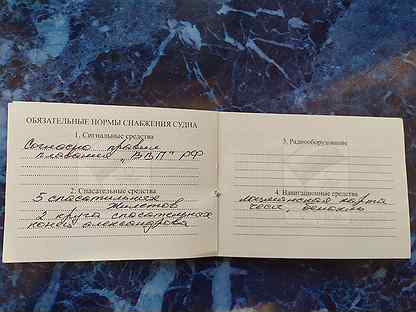 ОБЯЗАТЕЛЬНЫЕ НОРМЫ СНАБЖЕНИЯ СУДНА
1. Сигнальные средства
Согласно правил
плавания „ВВП" РФ
2. Спасательные средства
5 спасательных
жилетов
2 круга спасательных
конец александрова
3. Радиооборудование
4. Навигационные средства
лоцманская карта
часы, бинокль